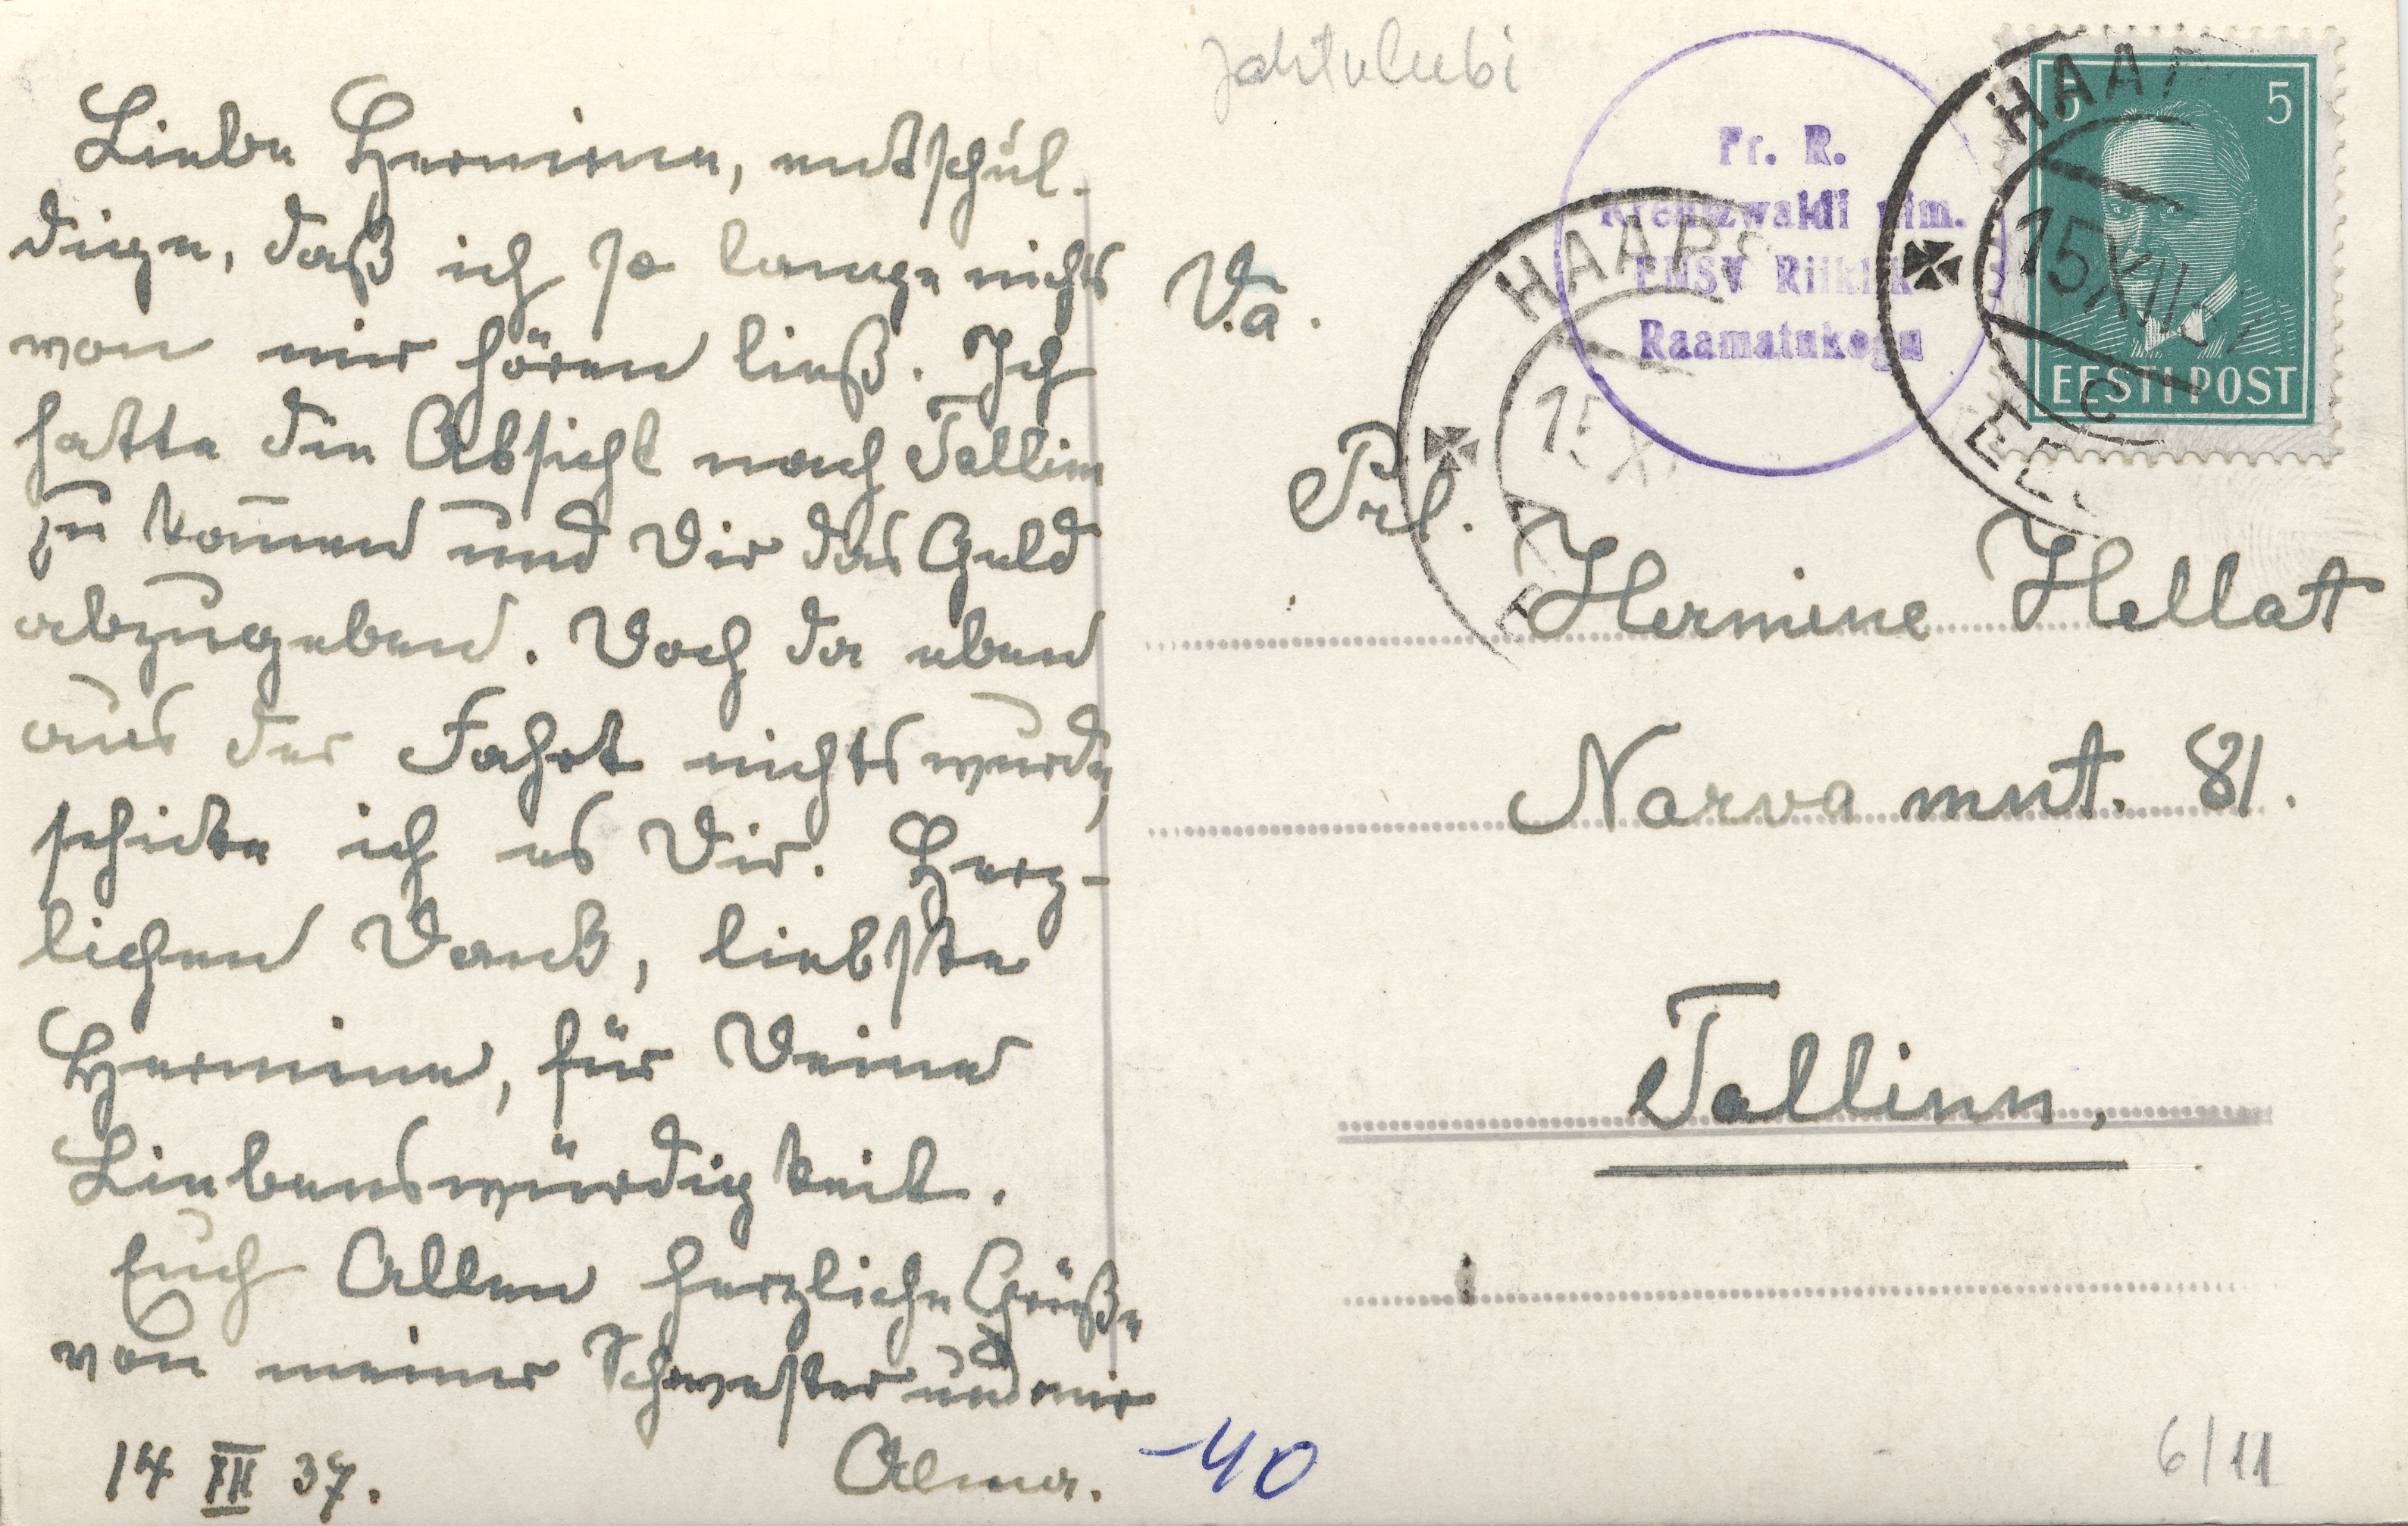 Liebe Hermine, entschul-
dige, daß ich so lange nichts
von mir hören ließ. Ich
hatte die Absicht nach Tallinn
zu kom̅en und Dir das Geld
abzugeben. Doch da eben
aus der Fahrt nichts wurde,
schicke ich es Dir. Herz-
lichen Dank, liebste
Hermine, für Deine
Liebenswürdigkeit.
Euch Allen herzliche Grüße
von meiner Schwester und mir
Alma.
14 XII 37.
jahtklubi
Fr. R.
Kreutzwaldi nim.
ENSV Riiklik
Raamatukogu
5 5
EESTI POST
HAAPS
15 XII
C
EES
HAAPS
15 X
V.a.
Prl.
Hermine Hellat
Narva mnt. 81.
Tallinn,
-40
6/11